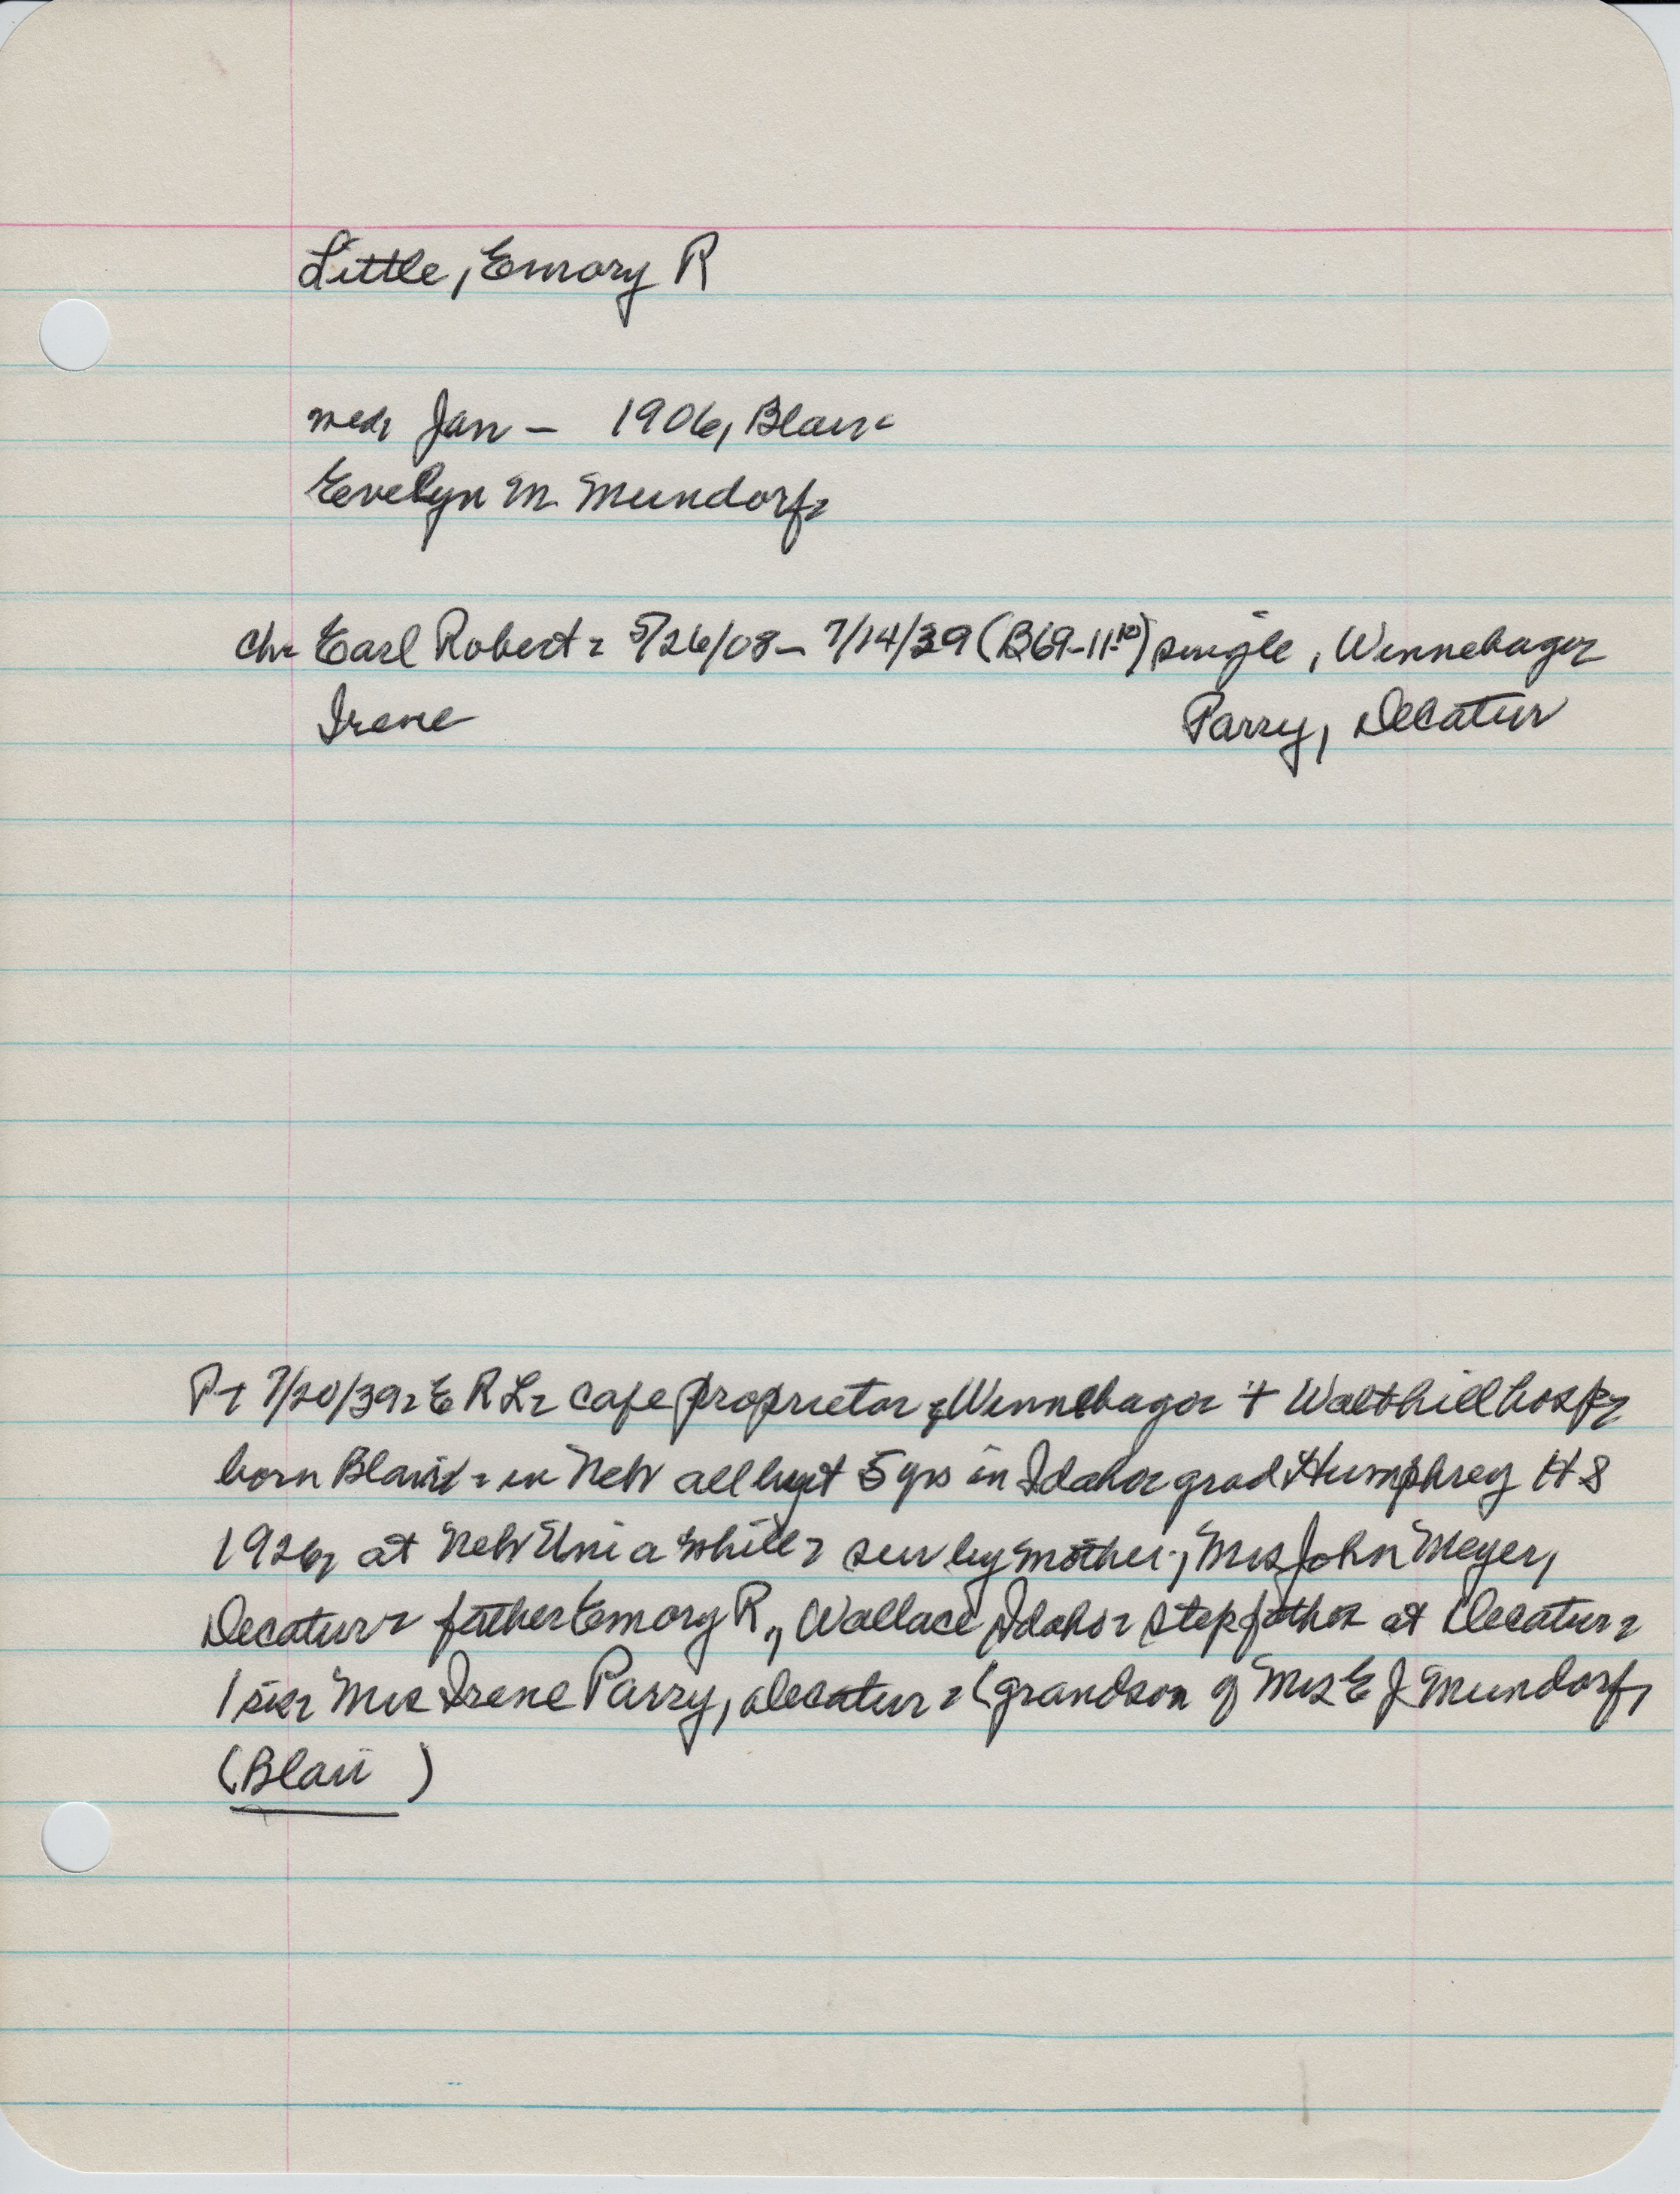 Little, Emory R
med, Jan - 1906, Blair -
Evelyn M. Mundorf -
ch - Earl Robert - 5/26/08 - 7/14/39 (B69-11-10) single, Winnebago -
Irene Parry, Decatur
P - 7/20/39 - E R L - cafe proprietor, Winnebago - + Walthill hosp -
born Blair - in Neb all but 5 yrs in Idaho - grad Humphrey H S
1926, at Neb Uni a while - sur by mother, Mrs John Meyer,
Decatur - father Emory R, Wallace, Idaho - stepfather at Decatur -
1 sis - Mrs Irene Parry, Decatur - (grandson of Mrs E J Mundorf,
(Blair )